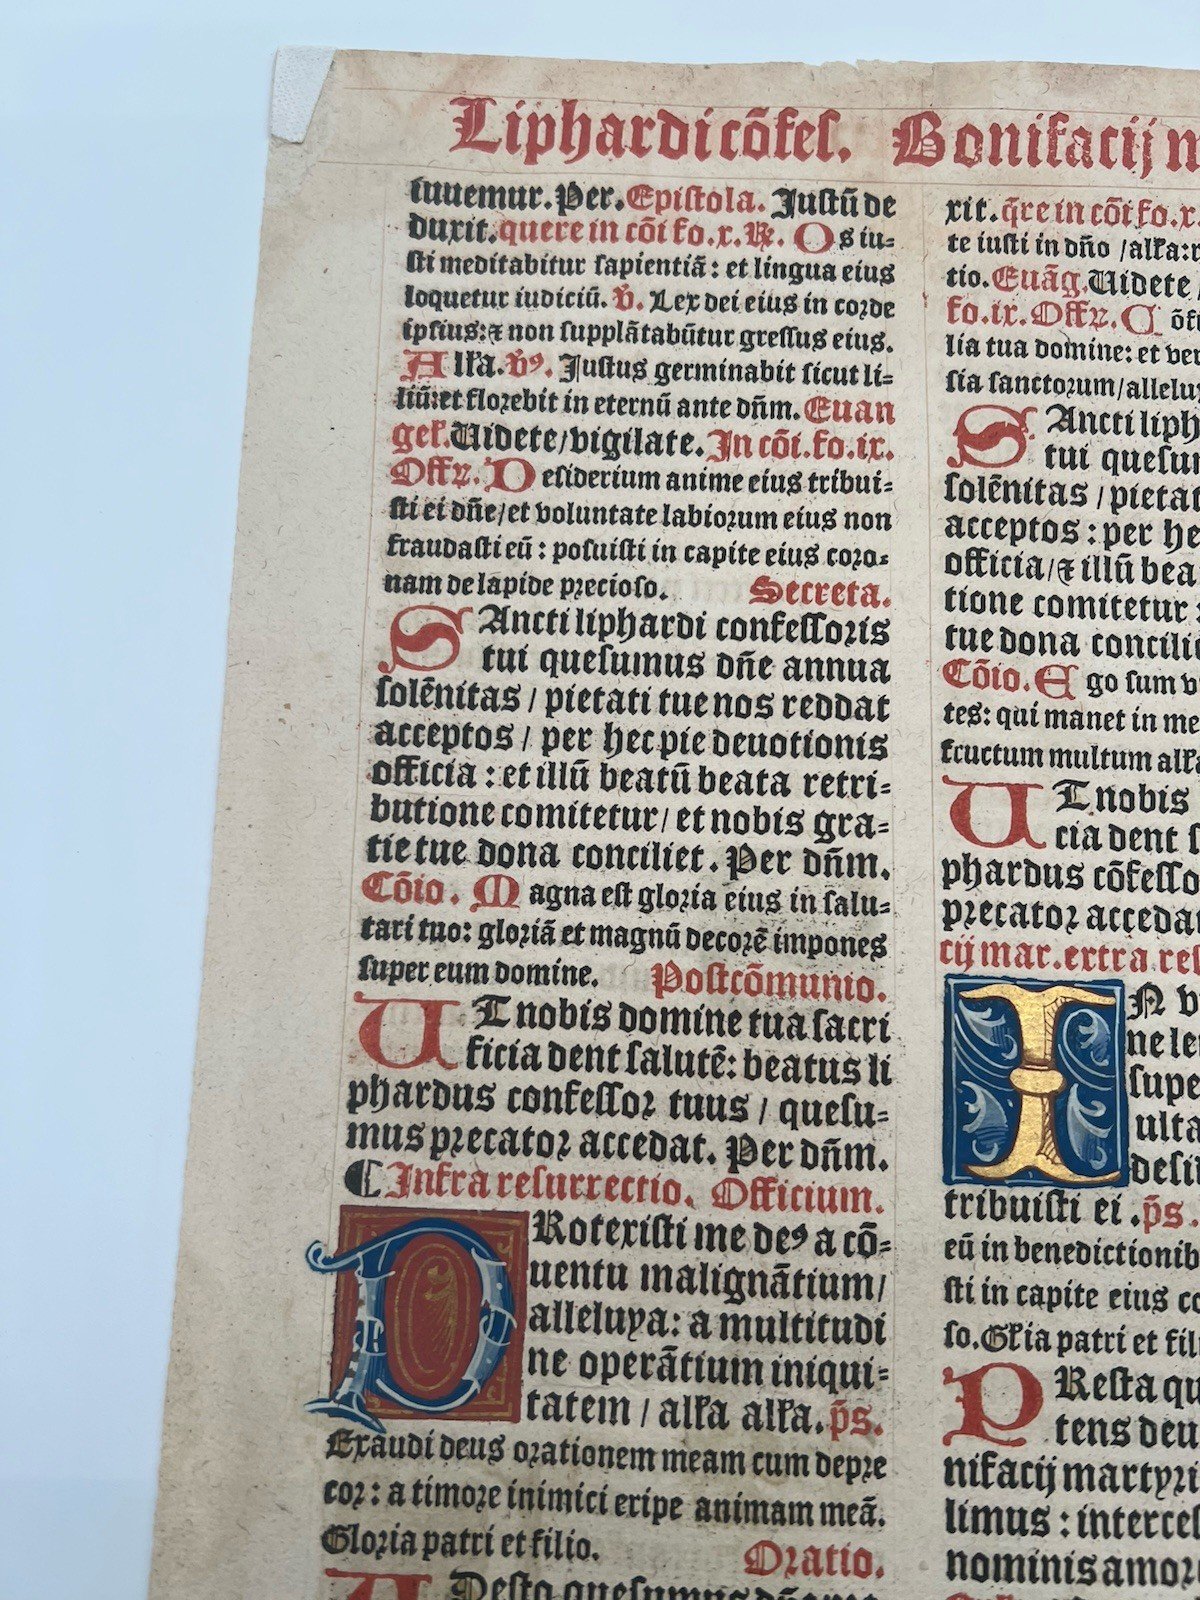 Liphardi cõfes. Bonifacij
iuuemur. Per. Epistola. Justũ de
duxit. quere in cõi fo. x. ℟. Os iu=
sti meditabitur sapientiã: et lingua eius
loquetur iudiciũ. ℣. Lex dei eius in corde
ipsius: ⁊ non supplãtabũtur gressus eius.
Alľa. ℣ꝰ. Justus germinabit sicut li=
liũ: et florebit in eternũ ante dñm. Euan
gel. Uidete/vigilate. In cõi. fo. ix.
Offꝝ. Desiderium anime eius tribui=
sti ei dñe/et voluntate labiorum eius non
fraudasti eũ: posuisti in capite eius coro=
nam de lapide precioso. Secreta.
SAncti liphardi confessoris
tui quesumus dñe annua
solẽnitas / pietati tue nos reddat
acceptos / per hec pie deuotionis
officia: et illũ beatũ beata retri=
butione comitetur/ et nobis gra=
tie tue dona conciliet. Per dñm.
Cõio. Magna est gloria eius in salu=
tari tuo: gloriã et magnũ decorẽ impones
super eum domine. Postcõmunio.
UT nobis domine tua sacri
ficia dent salutẽ: beatus li
phardus confessor tuus / quesu=
mus precator accedat. Per dñm.
¶ Infra resurrectio. Officium.
PRotexisti me deꝰ a cõ=
uentu malignãtium/
alleluya: a multitudi
ne operãtium iniqui=
tatem / alľa alľa. p̃s.
Exaudi deus orationem meam cum depre
cor: a timore inimici eripe animam meã.
Gloria patri et filio. Oratio.
ADesto quesumus
xit. q̃re in cõi fo. x
te iusti in dño /alľa:
tio. Euãg. Uidete/
fo. ix. Offꝝ. C õfi
lia tua domine: et ver
sia sanctorum/allelu
SAncti liph
tui quesum
solẽnitas / pietat
acceptos: per he
officia/⁊ illũ bea
tione comitetur
tue dona concili
Cõio. Ego sum v
tes: qui manet in me
fructum multum alľa
UT nobis
cia dent s
phardus cõfesso
precator acceda
cij mar. extra res
IN v
ne le
supe
ulta
desi
tribuisti ei. p̃s.
eũ in benedictionib
sti in capite eius co
so. Gľia patri et fil
PResta qu
tens deu
nifacij martyri
limus: interces
nominis amor